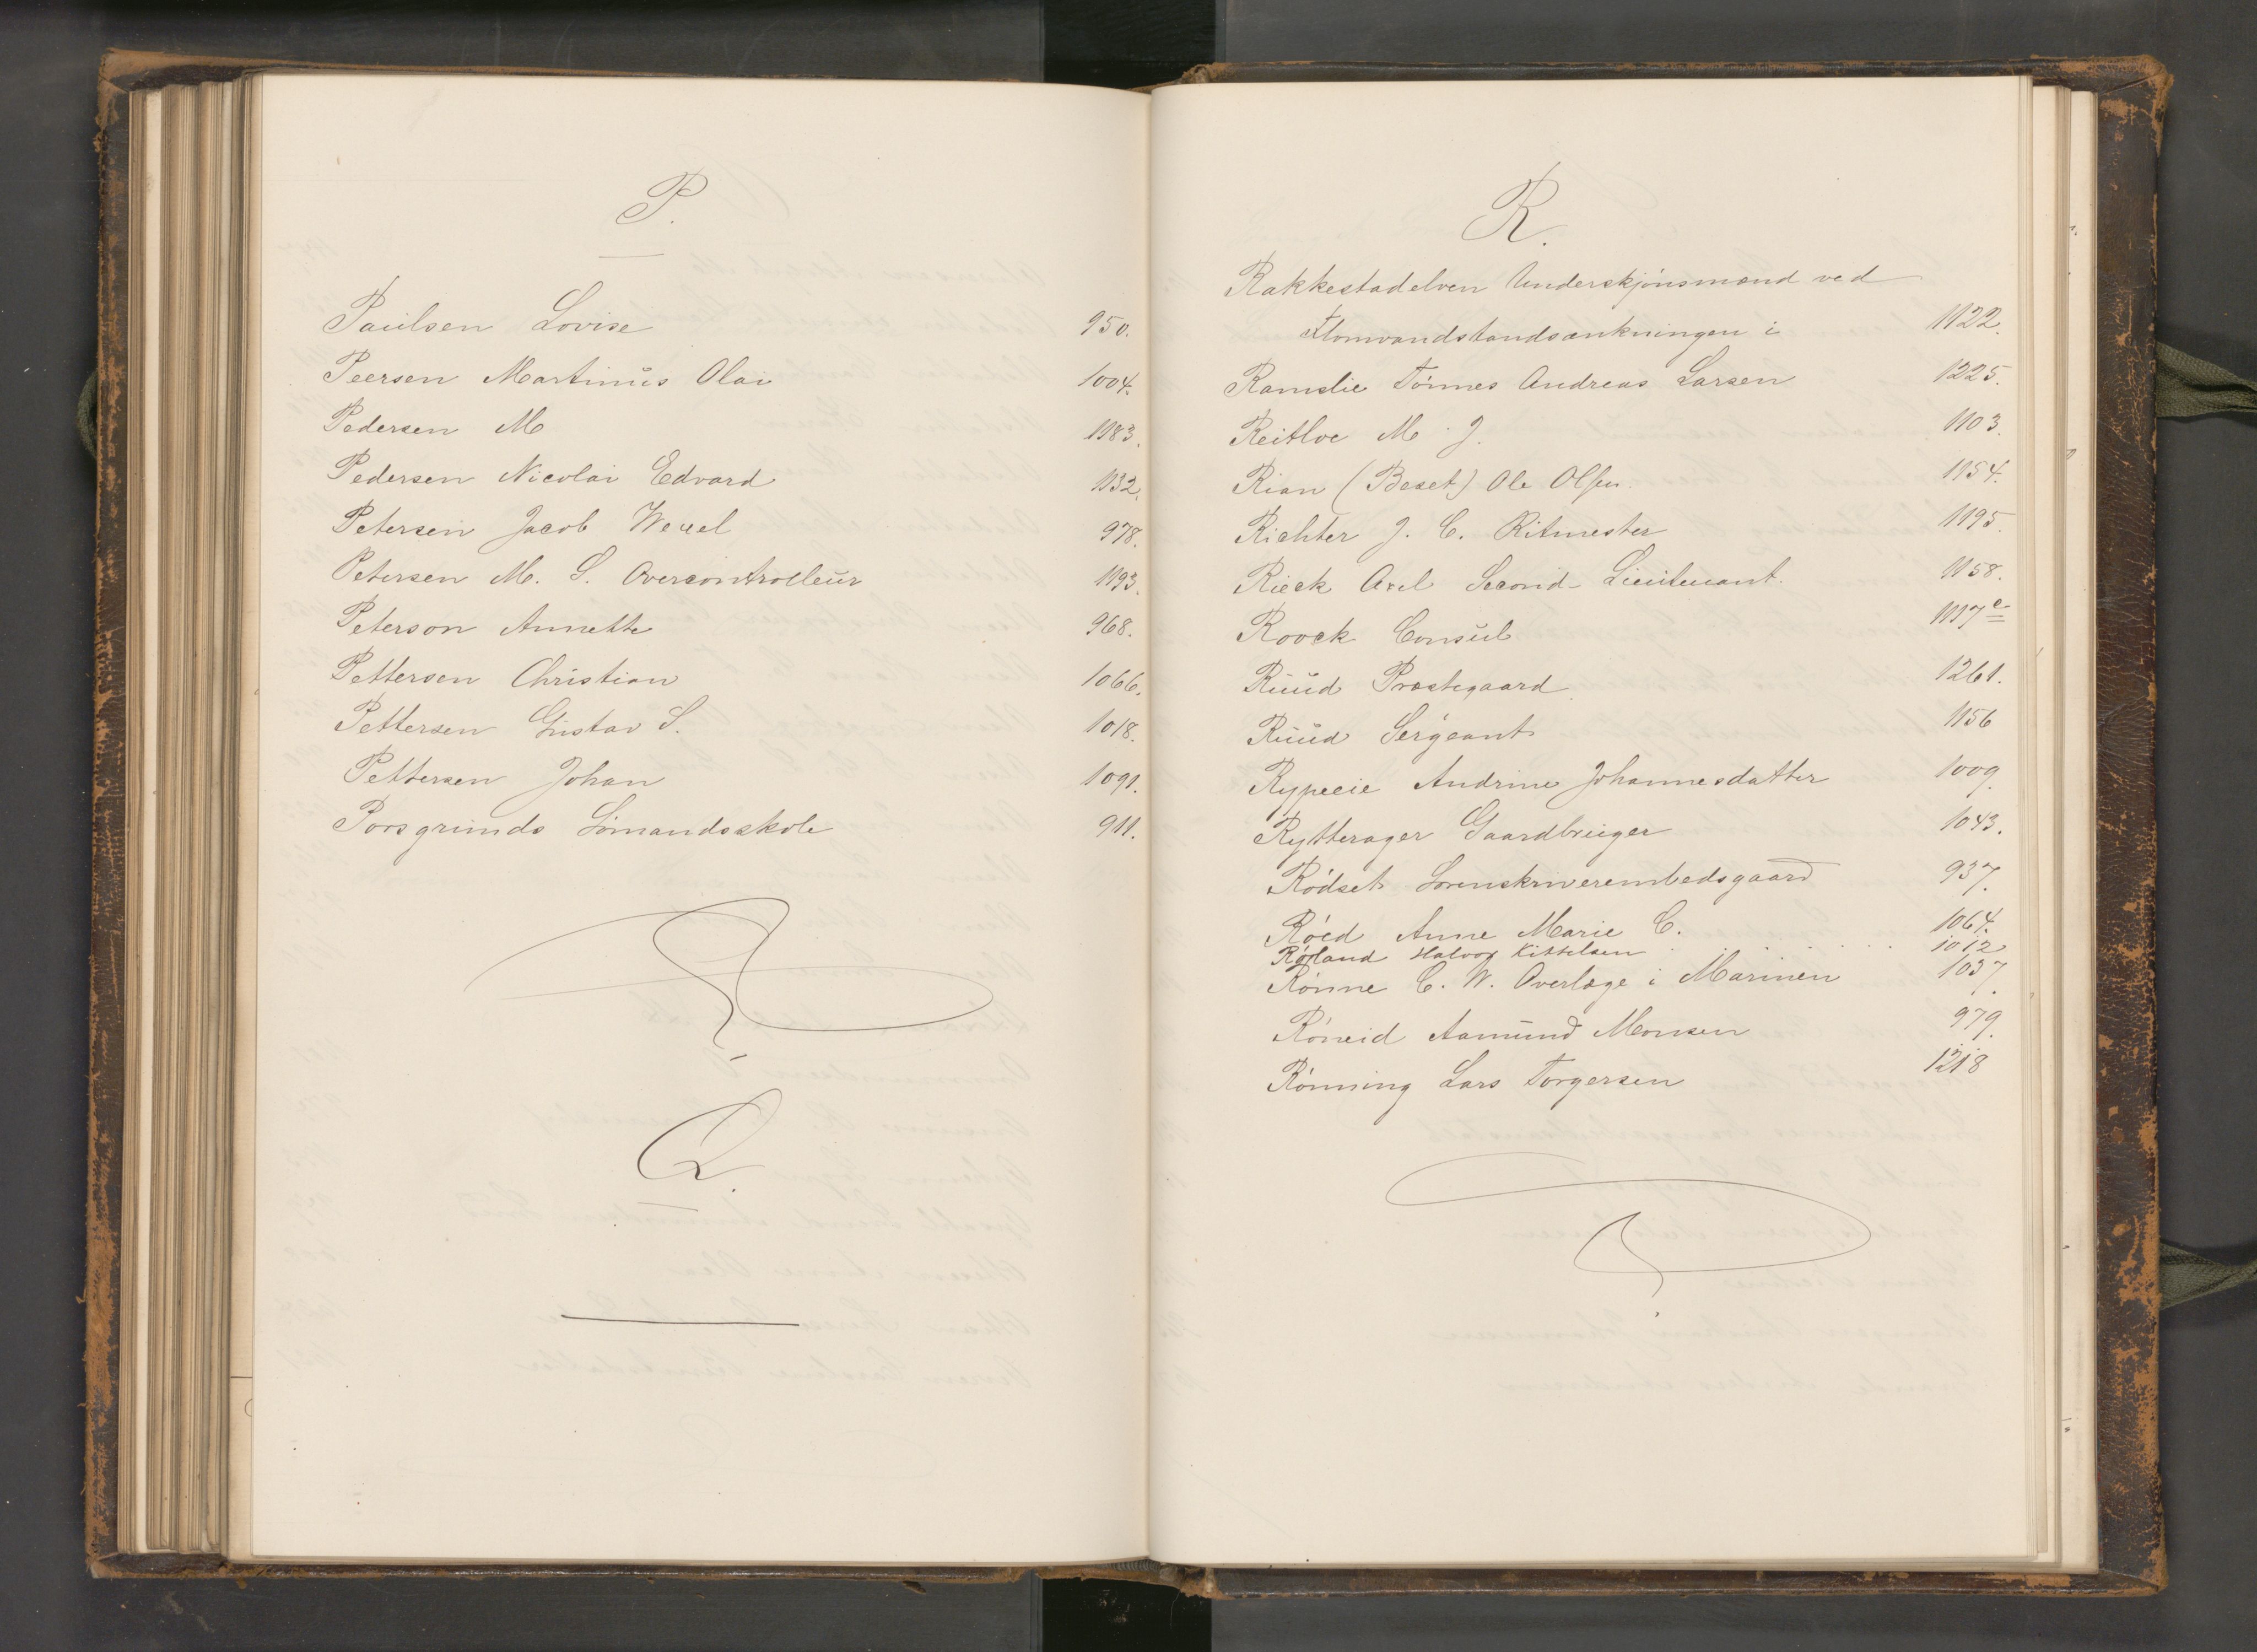 P.
Paulsen Lovise 950.
Peersen Martinus Olai 1004.
Pedersen M 1183.
Pedersen Nicolai Edvard 1132.
Petersen Jacob Wexel 978.
Petersen M. S. Overcontrolleur 1193.
Peterson Annette 968.
Pettersen Christian 1066.
Pettersen Gustav S. 1018.
Pettersen Johan 1091.
Porsgrunds Sømandsskole 911.
Q.
R.
Rakkestadelven Underskjønsmænd ved
Flomvandstandsænkningen i 1122.
Ramslie Tønnes Andreas Larsen 1225.
Reitloe M. J. 1103.
Rian (Beset) Ole Olsen. 1154.
Richter J. C. Ritmester 1195.
Rieck Axel Second-Lieutenant. 1158.
Roock Consul 1117 c
Ruud Præstegaard 1261.
Ruud Sergeant 1156
Andrine Johannesdatter 1009
Rytterager Gaardbruger 1043.
Rødset Sorenskriverembedsgaard 937.
Røed Anne Marie C. 1064.
Rørland Halvor Kittelsen 1012
Rønne C. W. Overlæge i Marinen 1037.
Røneid Aamund Monsen 979.
Rønning Lars Torgersen 1218